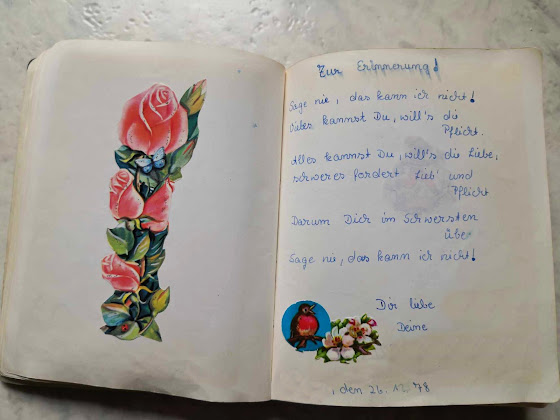 Zur Erinnerung!
Sage nie, das kann ich nicht!
Vieles kannst Du, will's die
Pflicht.
Alles kannst Du, will's die Liebe,
schweres fordert Lieb' und
Pflicht
Darum Dich im Schwersten
übe
Sage nie, das kann ich nicht!
Dir liebe
Deine
, den 26. 12. 78